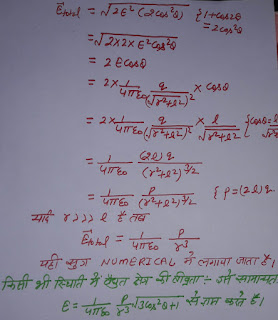 E⃗total = √2E² (2cos²θ) {1+cos2θ = 2cos²θ
= √2×2×E²cos²θ
= 2 E cosθ
= 2× 1/4πε₀ q/(√r²+l²)² × cosθ
= 2× 1/4πε₀ q/(√r²+l²)² × l/√r²+l² {cosθ = l/√r²
= 1/4πε₀ (2l) q/(r²+l²)^3/2
= 1/4πε₀ p/(r²+l²)^3/2 { p = (2l) q
यदि r>>>l है तब
E⃗total = 1/4πε₀ p/r³
यही सूत्र NUMERICAL में लगाया जाता है।
किसी भी स्थिति में वैद्युत क्षेत्र की तीव्रता :- इसे सामान्यतः
E = 1/4πε₀ p/r³ √3cos²θ+1 से ज्ञात करते हैं।